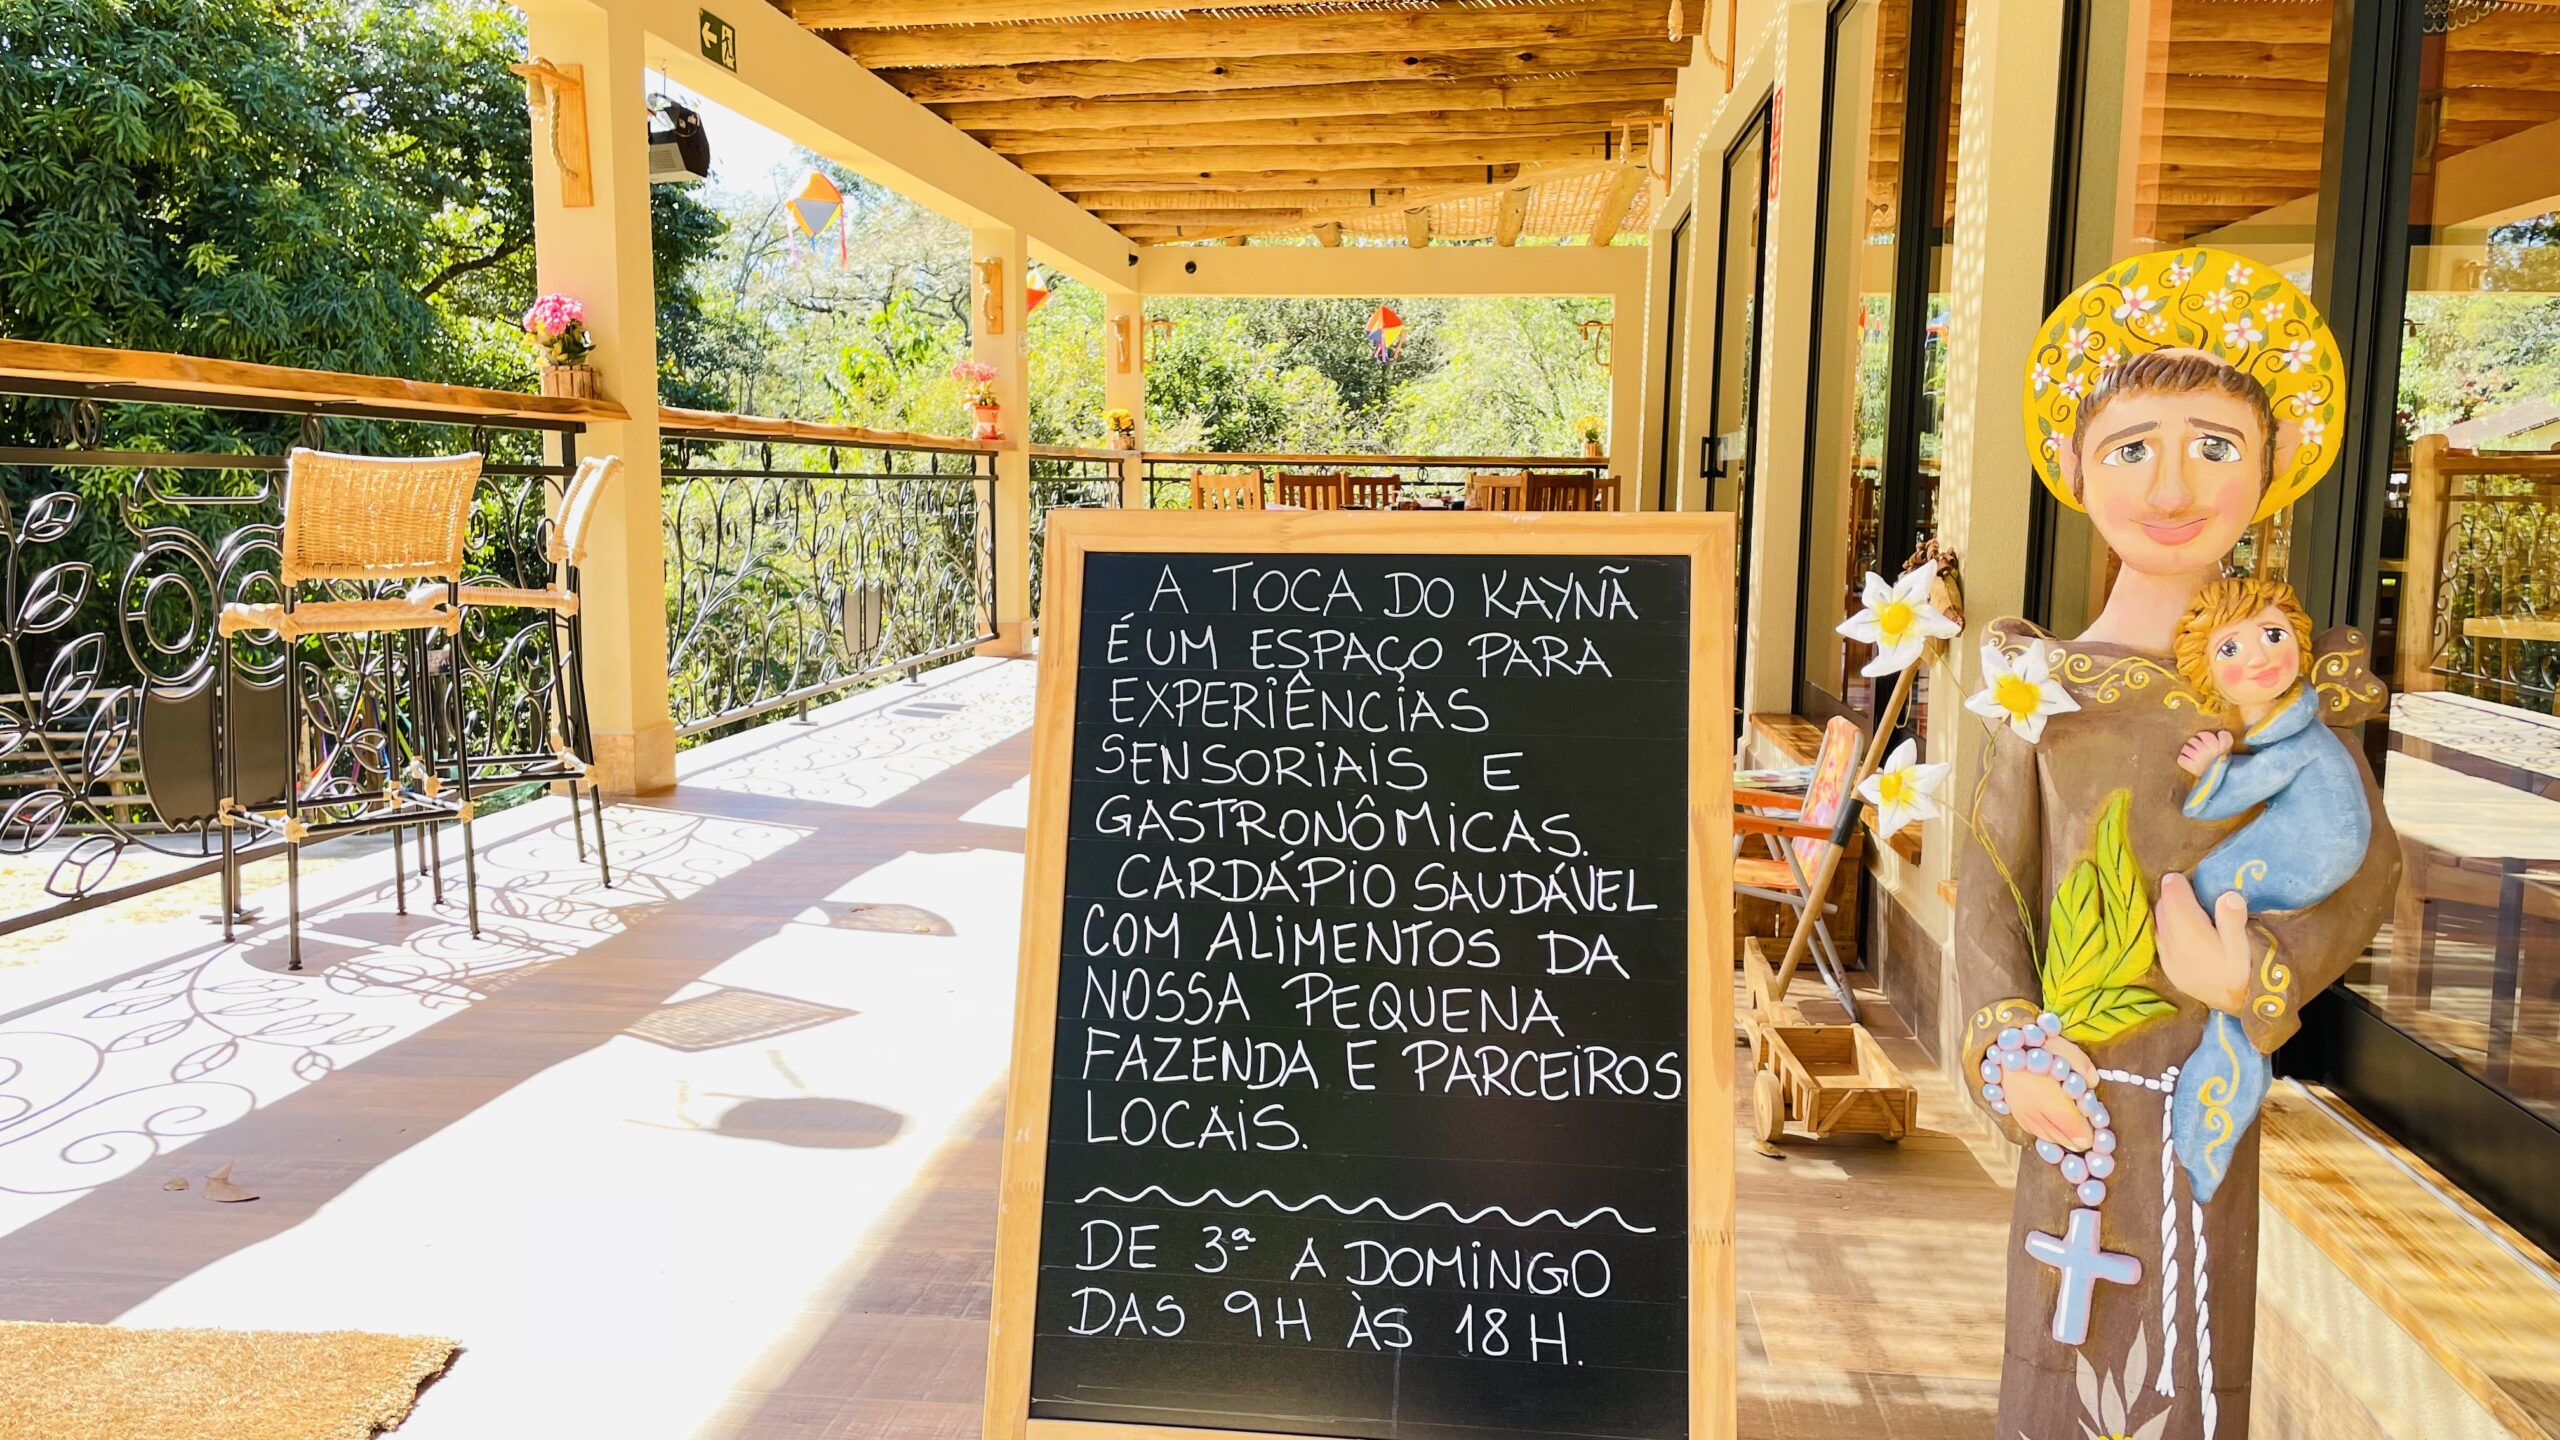 A TOCA DO KAYNÃ
É UM ESPAÇO PARA
EXPERIÊNCIAS
SENSORIAIS E
GASTRONÔMICAS.
CARDÁPIO SAUDÁVEL
COM ALIMENTOS DA
NOSSA PEQUENA
FAZENDA E PARCEIROS
LOCAIS.
DE 3ª A DOMINGO
DAS 9H ÀS 18H.